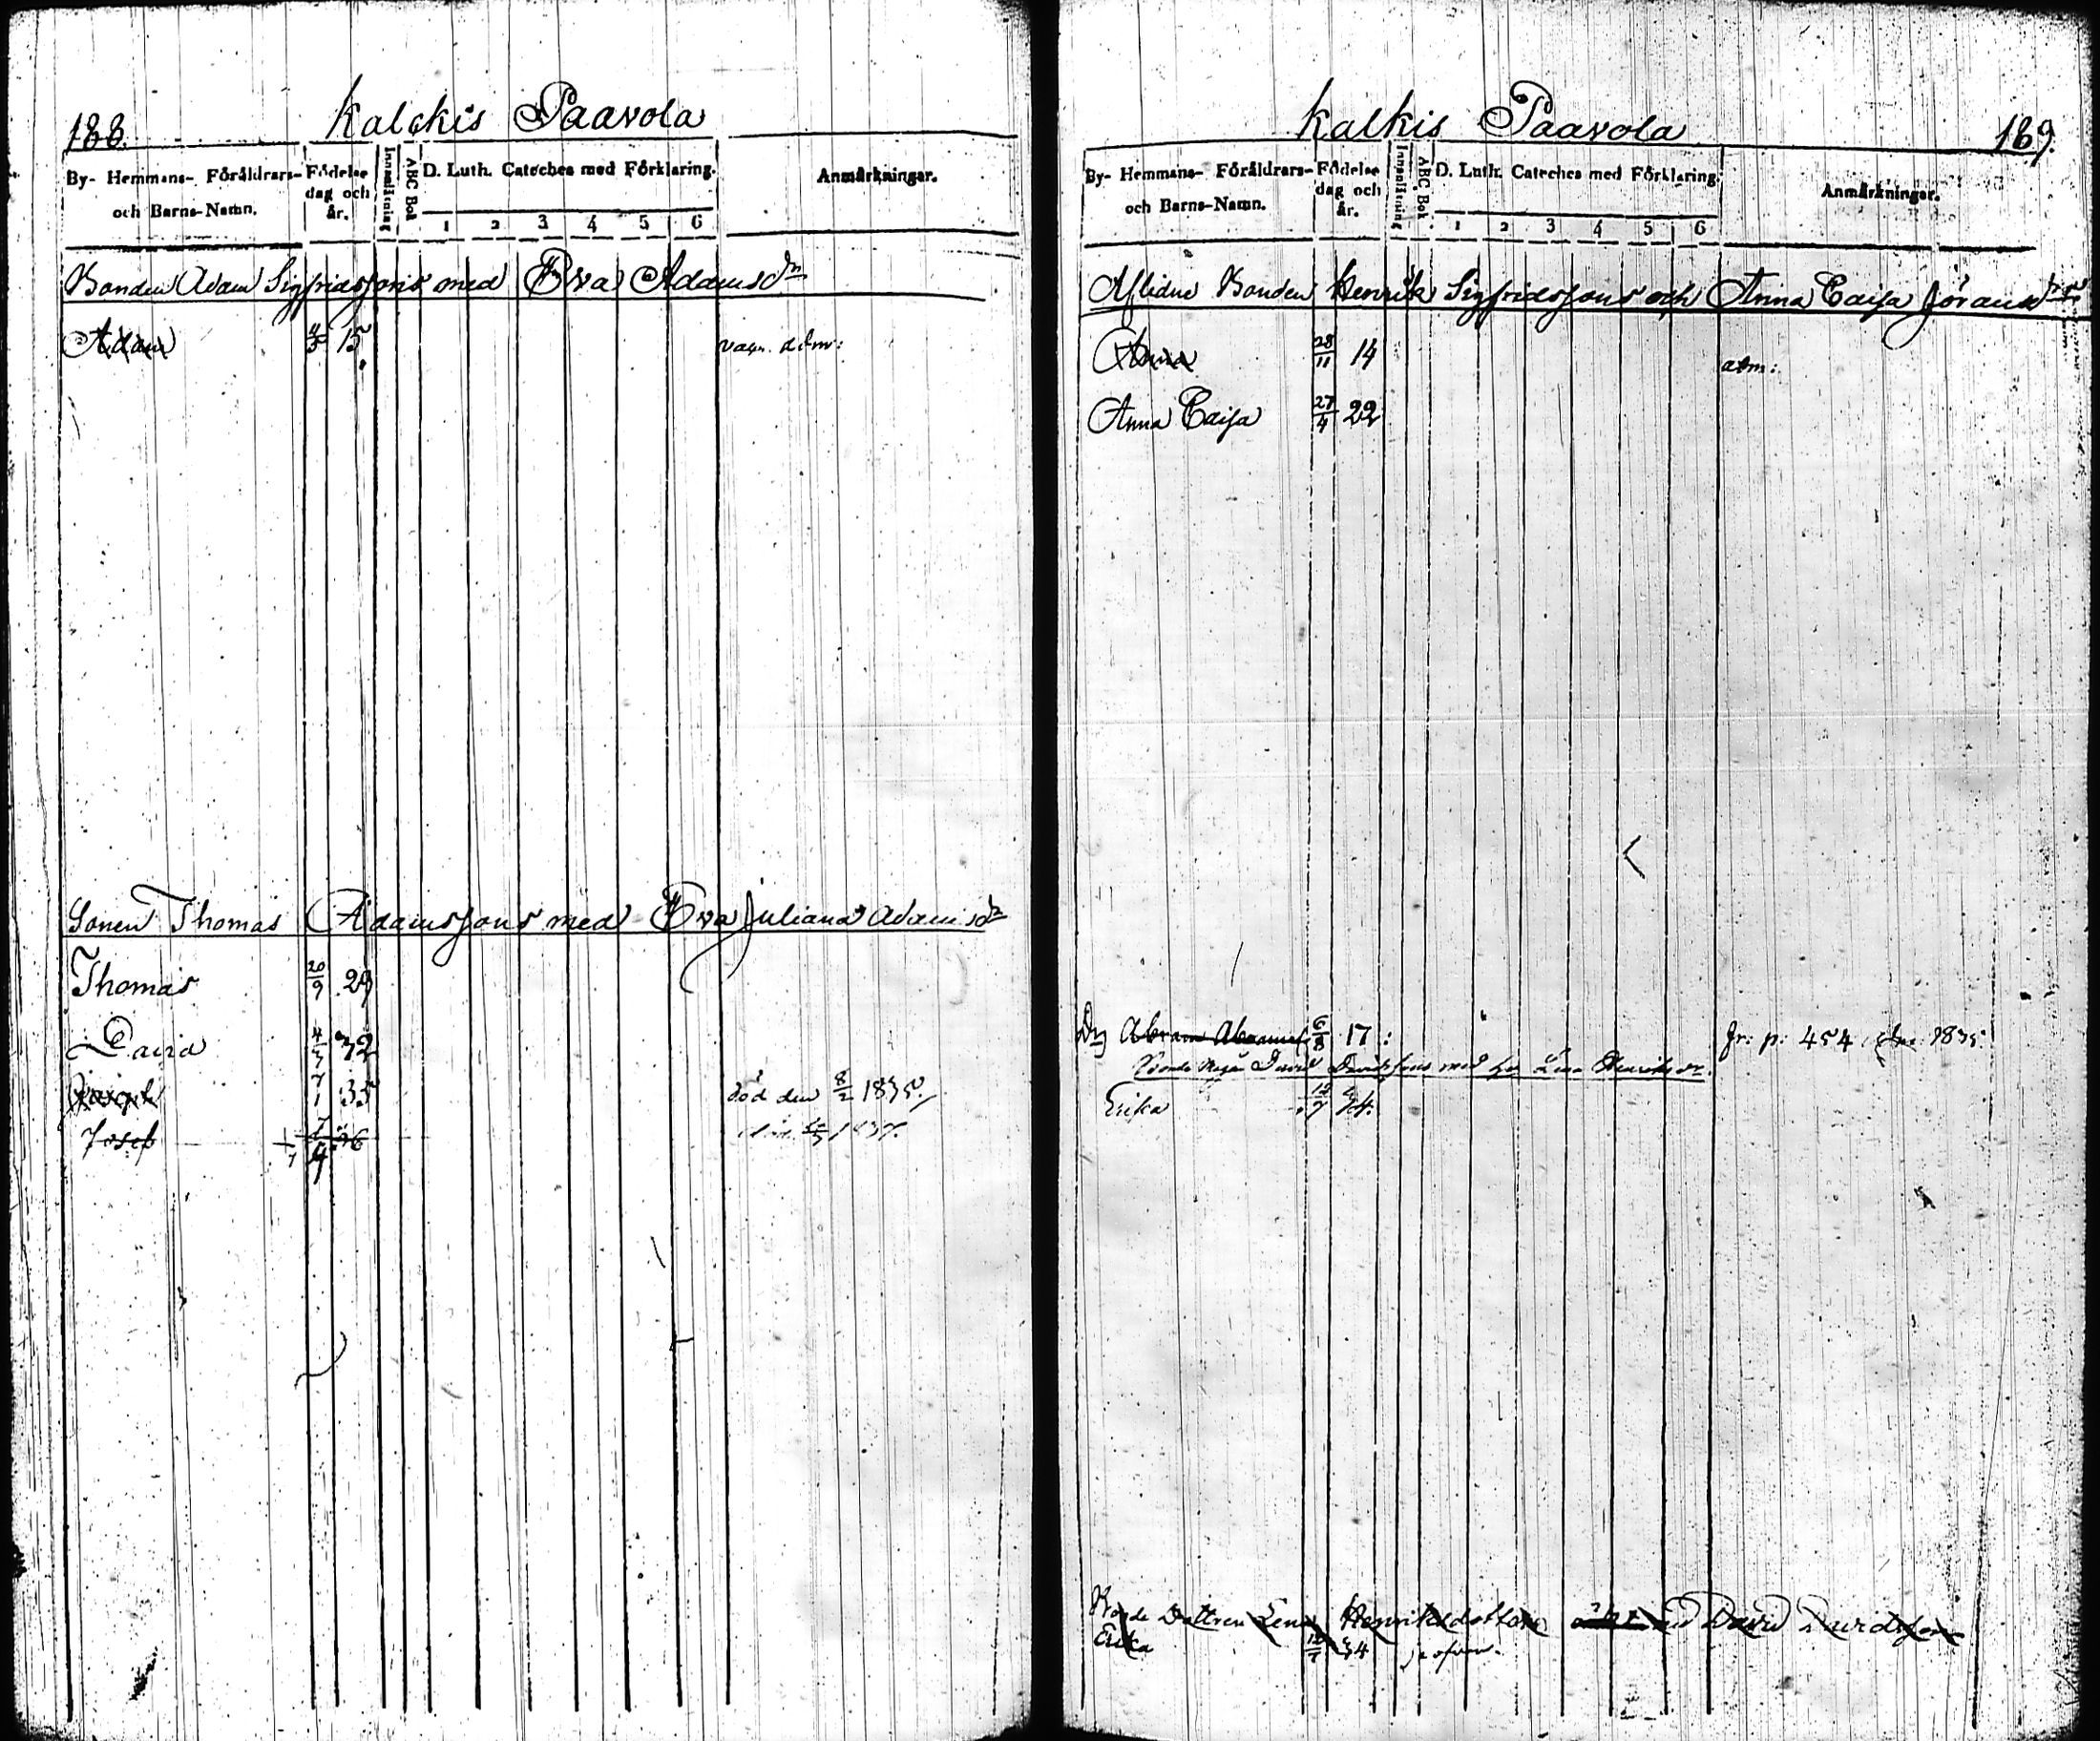 188.
Kalckis Paavola
By- Hemmans- Föräldrars- och Barns-Namn.
Födelse dag och år.
Innanläsning
ABC Bok
D. Luth. Cateches med Förklaring.
1 2 3 4 5 6
Anmärkningar.
Bonden Adam Sigfridssons med Eva Adamsdr
Adam 15
Sonen Thomas Adamssons med Eva Juliana Adamsdr
Thomas 20/9 29
David 4/3 32
7/1 35 död den 8/2 1835.
Josef 36
Kalkis Paavola
189.
By- Hemmans- Föräldrars- och Barns-Namn.
Födelse dag och år.
Innanläsning
ABC Bok.
D. Luth. Cateches med Förklaring.
1 2 3 4 5 6
Anmärkningar.
Aflidne Bonden Henrik Sigfridssons och Anna Caisa Jöransdrs
Anna 28/11 14 adm:
Anna Caisa 27/4 22
Drg Abram Abramss 6/8 17 fr: p: 454 1835
David Davidssons med Lena Henriksdr.
Erika 12/7 34.
Dottren Lena Henriksdotter med David Davidsson
Erika 12/7 34